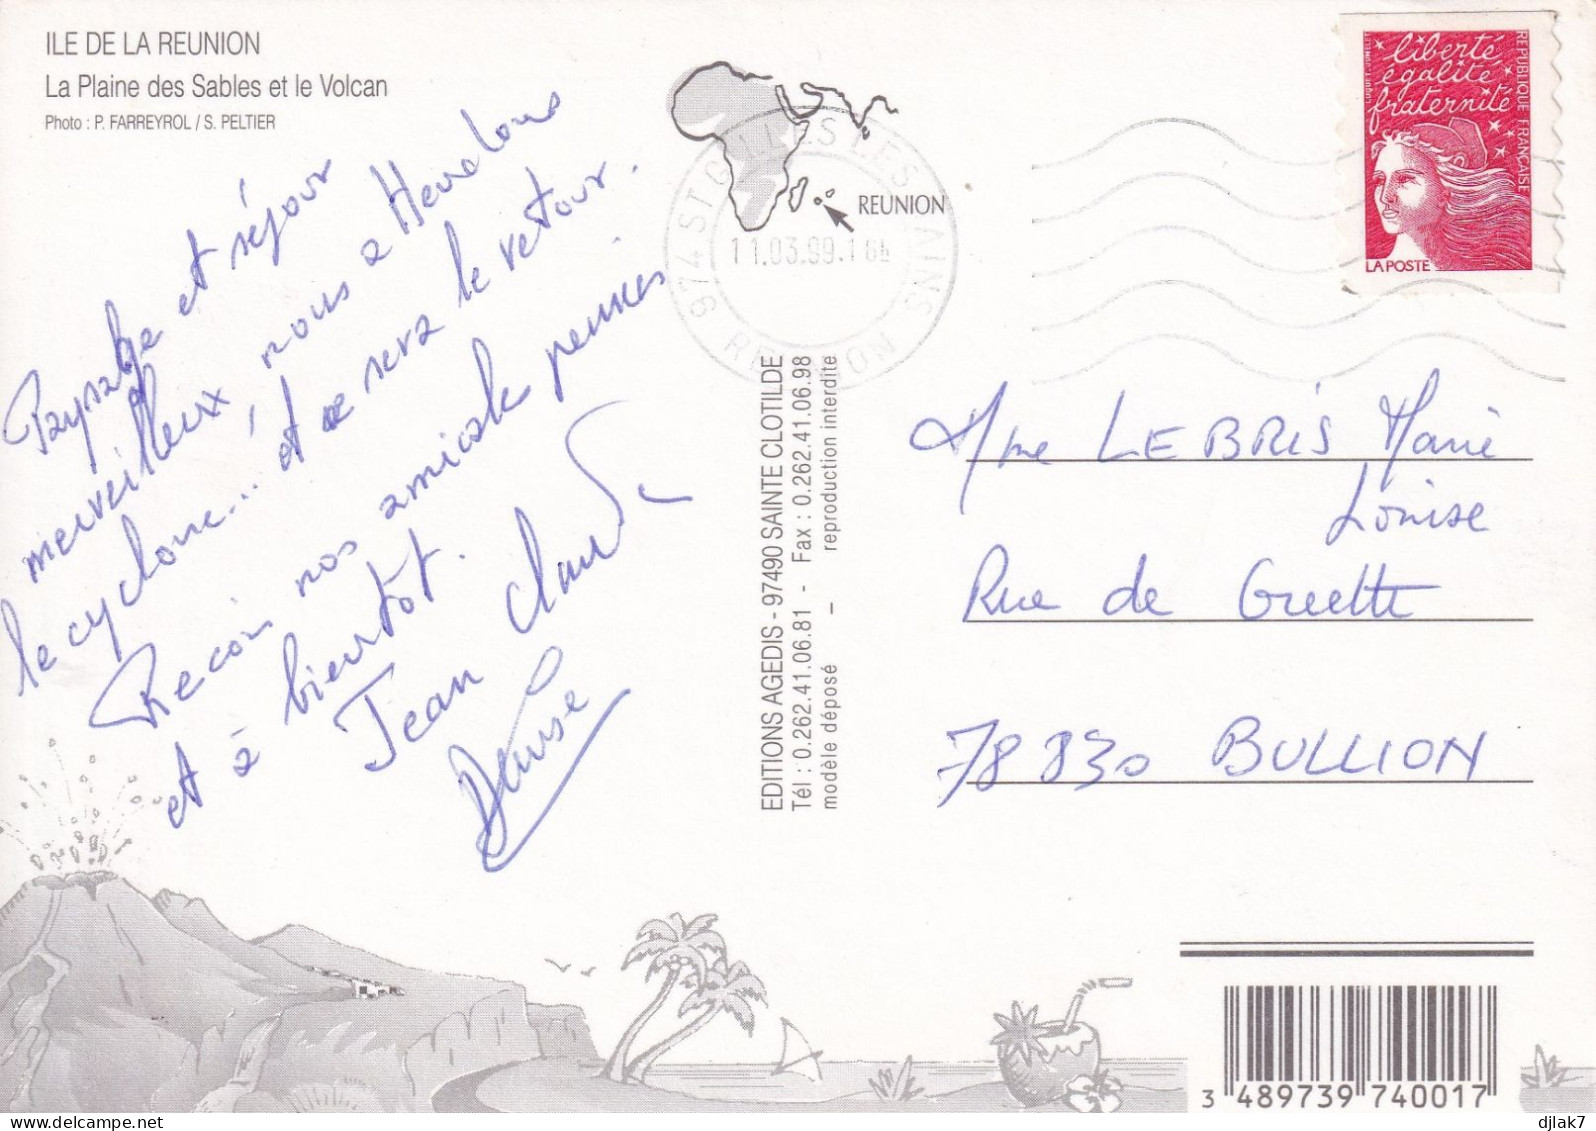 ILE DE LA REUNION
La Plaine des Sables et le Volcan
Photo : P. FARREYROL / S. PELTIER
Paysage et séjour
merveilleux, nous
le cyclone... et ce sera le retour.
Recois nos amicale pensées
et à bientôt.
Jean Claude
Denise
REUNION
974 ST GILLES LES BAINS
11.03.99.18H
REUNION
EDITIONS AGEDIS - 97490 SAINTE CLOTILDE
Tél : 0.262.41.06.81 - Fax : 0.262.41.06.98
modèle déposé – reproduction interdite
liberté
égalité
fraternité
REPUBLIQUE FRANÇAISE
LA POSTE
Mme LE BRIS Marie
Louise
Rue de Guette
78830 BULLION
3 489739 740017
djlak7